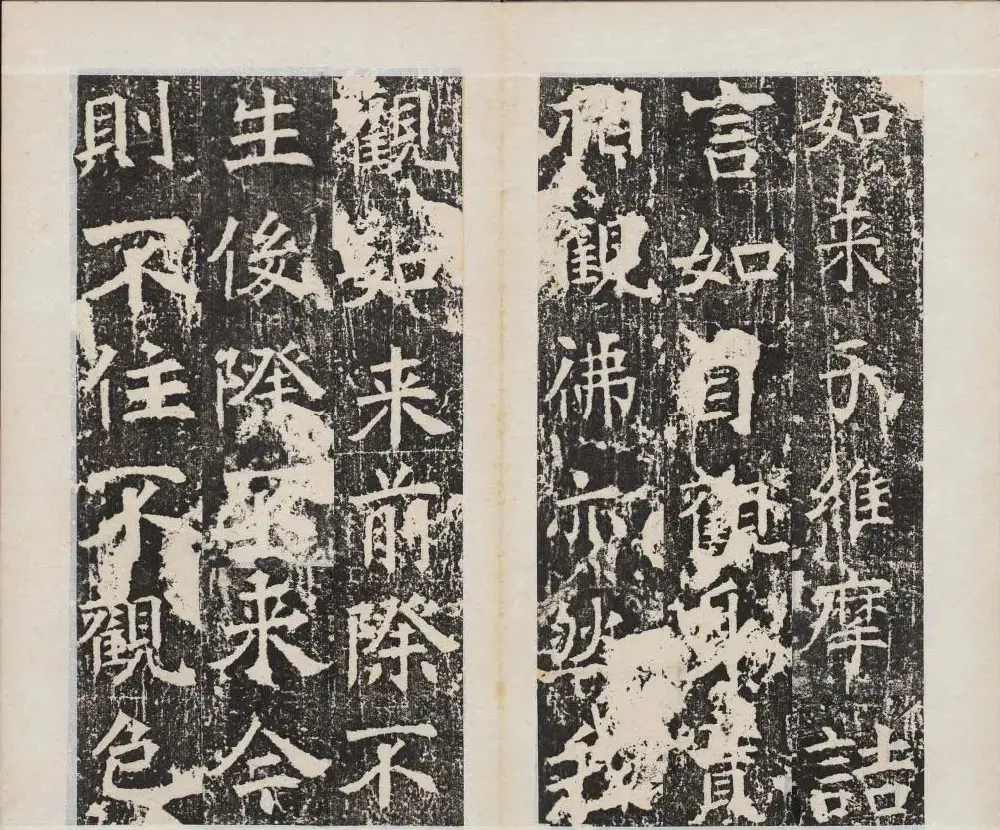 如来乎維摩詰
言如自觀身實
相觀佛亦然我
觀如来前際不
生後際来今
則不住不觀色